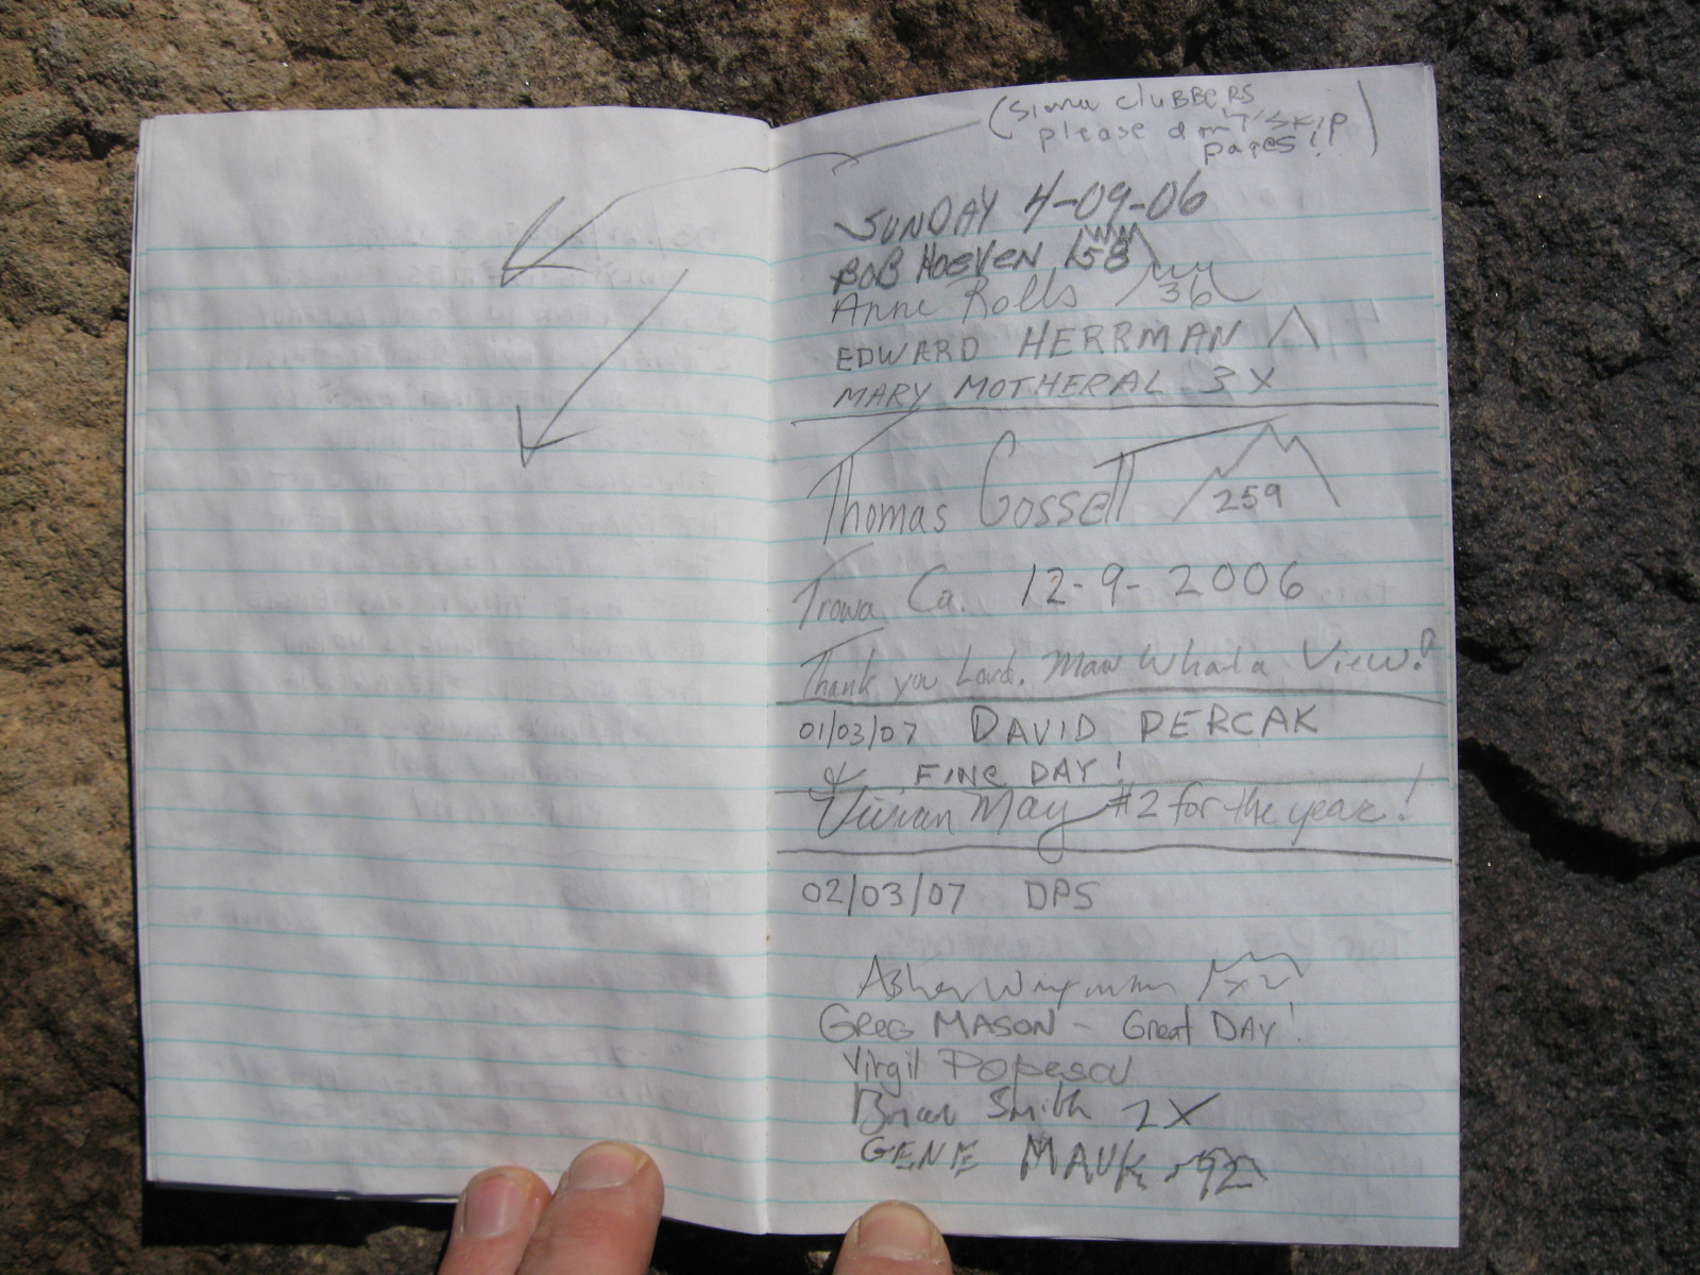 (Sierra clubbers
please don't skip
pages!!)
SUNDAY 4-09-06
BOB HOEVEN 158
Anne Rolls 36
EDWARD HERRMAN
MARY MOTHERAL 3X
Thomas Gossett 259
Trona Ca. 12-9-2006
Thank you Lord. Man What a View!
01/03/07 DAVID PERCAK
& FINE DAY!
Vivian May #2 for the year!
02/03/07 DPS
Asher x2
GREG MASON - Great DAY!
Virgil Popescu
Brian Smith 2X
GENE MAUK 92